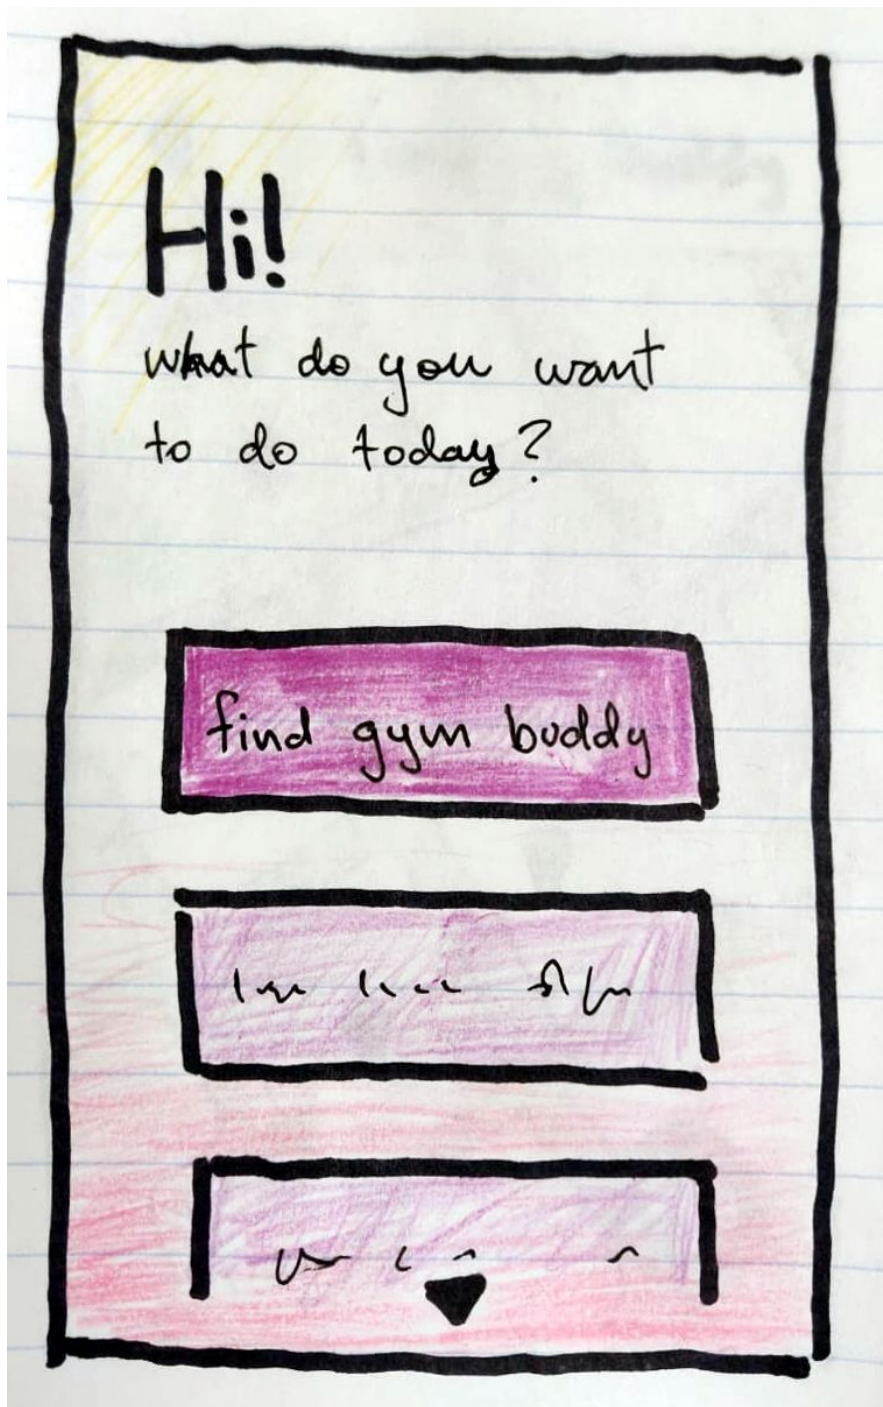 Hi!
what do you want
to do today?
find gym buddy